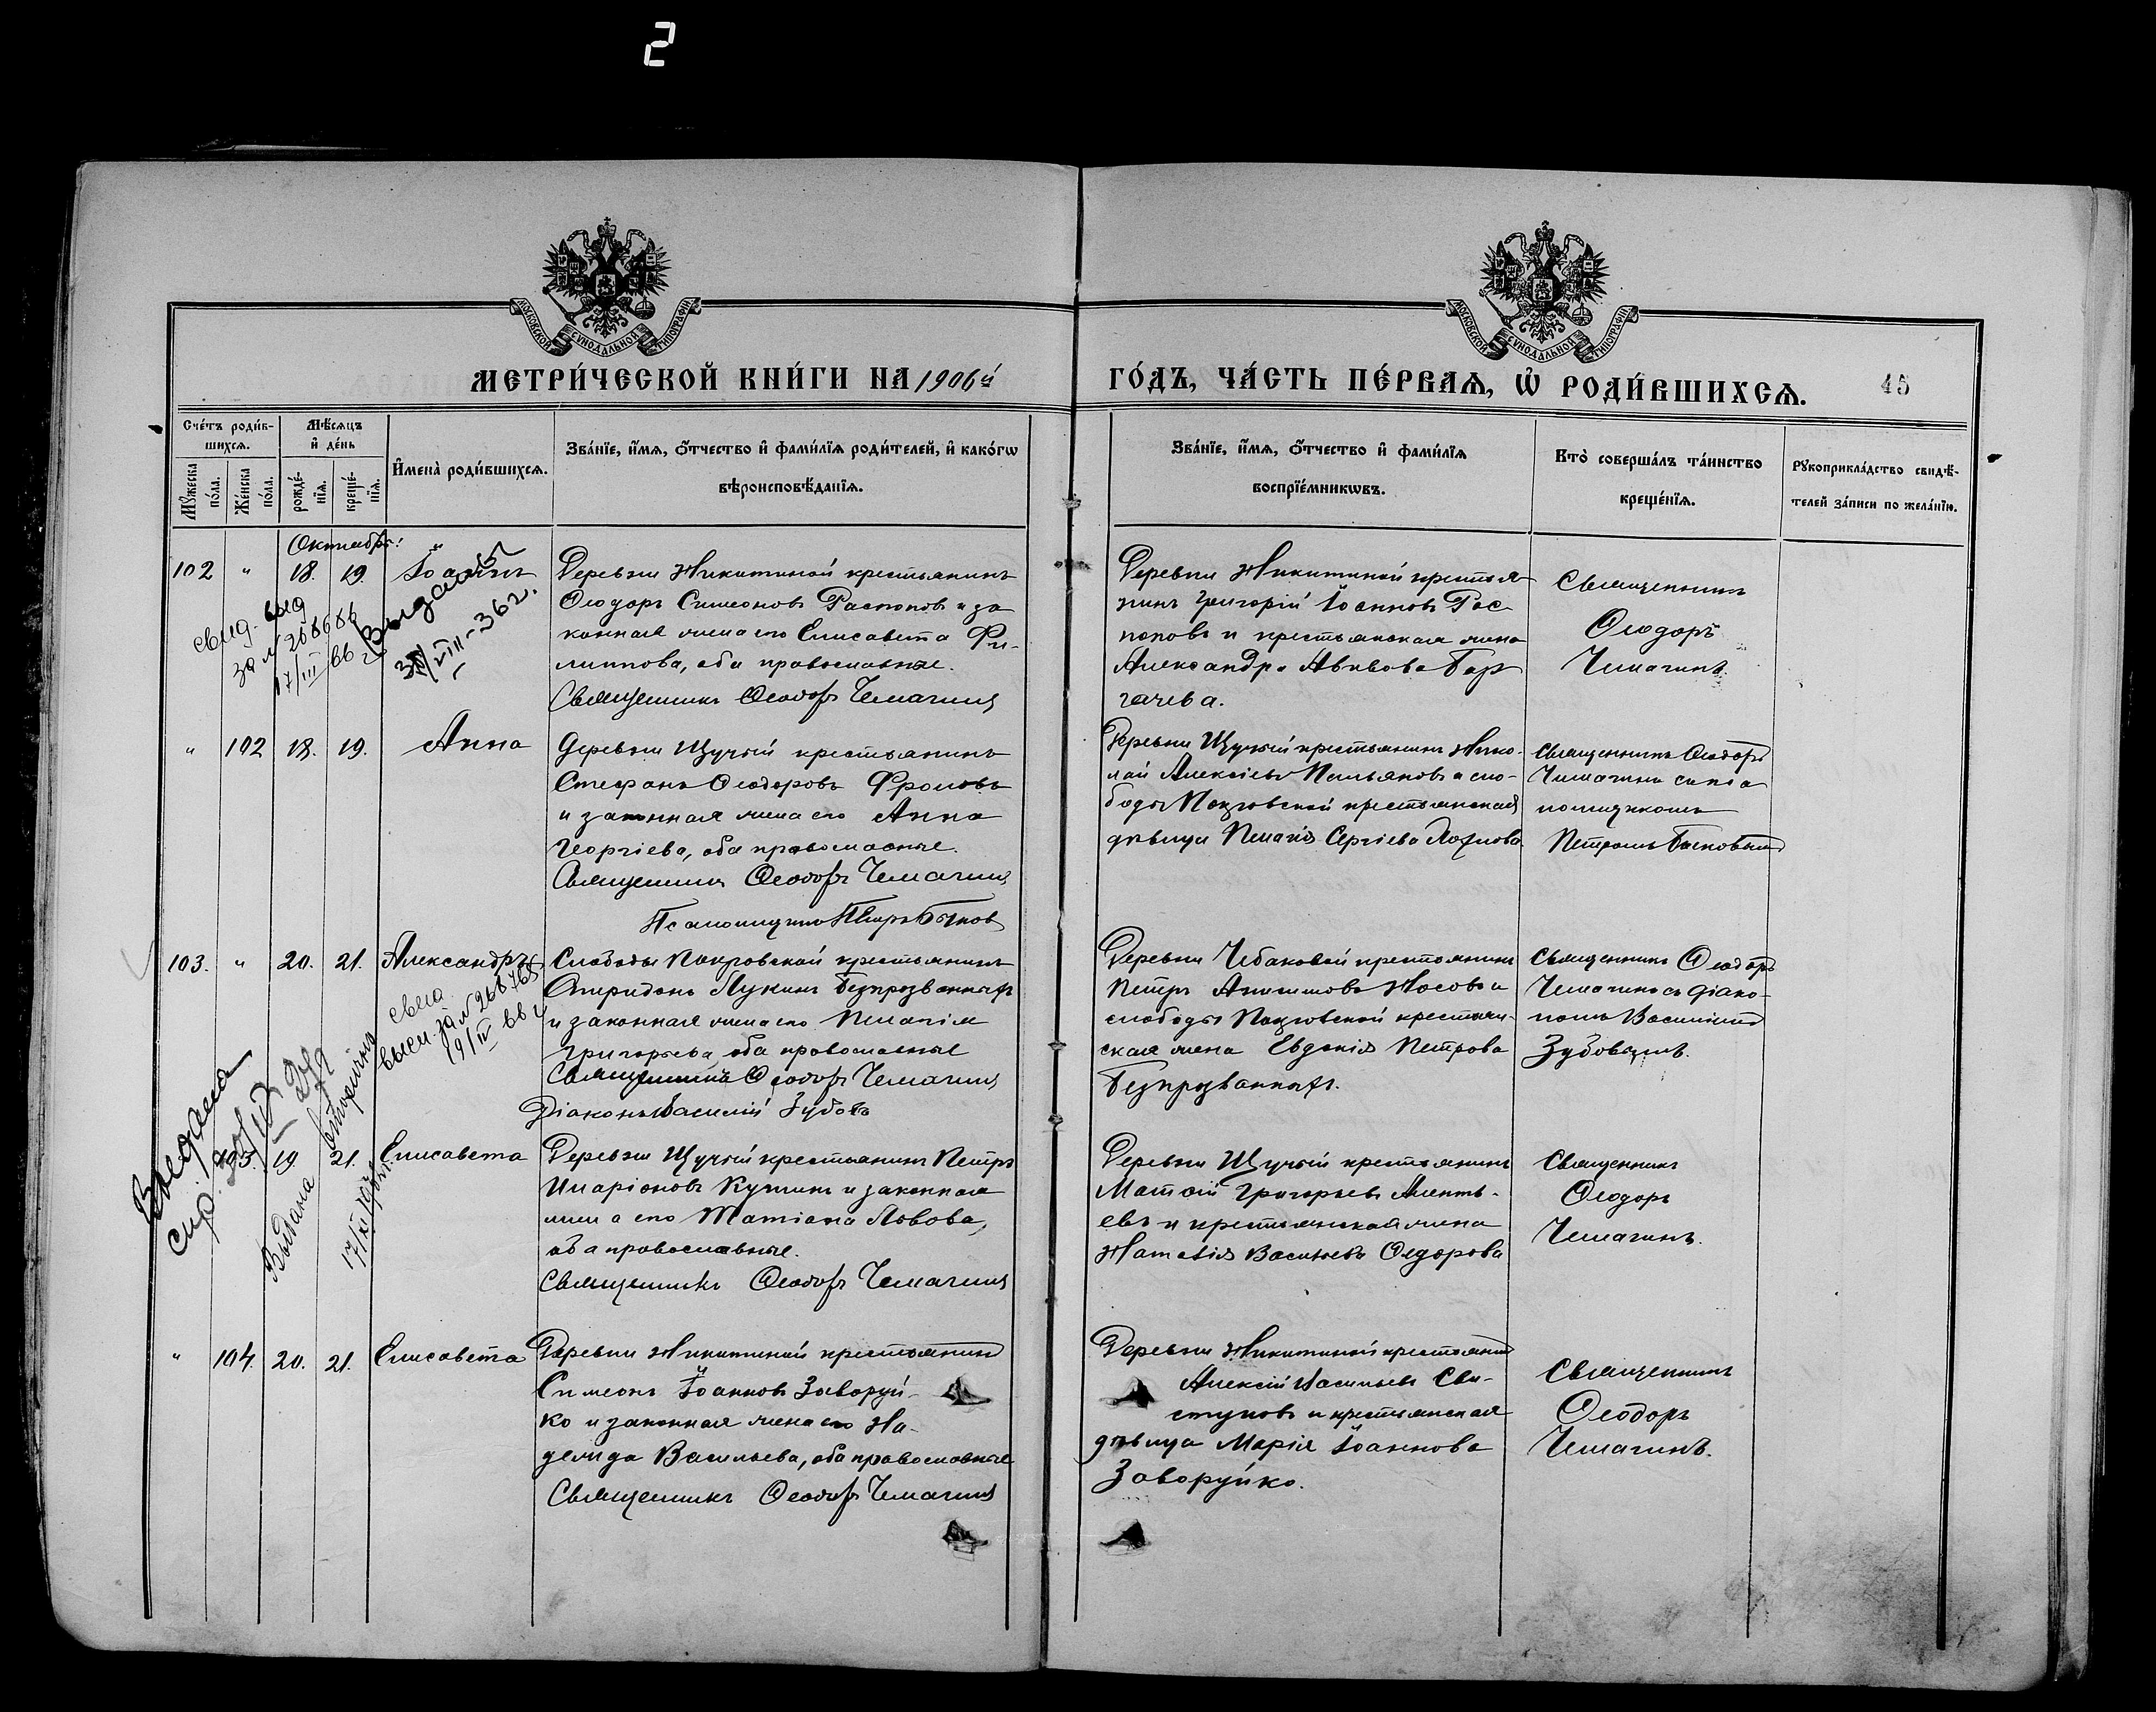 2
МОСКОВСКОЙ СѴНОДАЛЬНОЙ ТИПОГРАФІИ
МОСКОВСКОЙ СѴНОДАЛЬНОЙ ТИПОГРАФІИ
МЕТРИ́ЧЕСКОЙ КНИ́ГИ НА 1906й
ГО́ДЪ, ЧА́СТЬ ПЕ́РВАѦ, Ѽ РОДИ́ВШИХСѦ.
45
Сче́тъ роди́в-
шихсѧ.
Мꙋ́жеска по́ла.
Же́нска по́ла.
Мѣ́сѧцъ
и҆ де́нь
рожде́-нїѧ.
креще́-нїѧ.
И҆мена̀ роди́вшихсѧ.
Зва́нїе, и҆́мѧ, ѻ҆́тчество и҆ фами́лїѧ роди́телей, и҆ како́гѡ
вѣроисповѣ́данїѧ.
Зва́нїе, и҆́мѧ, ѻ҆́тчество и҆ фами́лїѧ
воспрїе́мникѡвъ.
Кто̀ соверша́лъ та́инство
креще́нїѧ.
Рꙋкоприкла́дство свидѣ́-
телей за́писи по жела́нїю.
Октябрь:
102 " 18. 19. Іоаннъ
Деревни Никитиной крестьянинъ
Ѳеодоръ Симеоновъ Распоповъ и за
конная жена его Елисавета Фи-
липпова, оба православные.
Священникъ Ѳеодоръ Чемагинъ
Деревни Никитиной крестья-
нинъ Григорій Іоанновъ Рас-
поповъ и крестьянская жена
Александра Авивова
Священникъ
Ѳеодоръ
Чемагинъ.
свид. выд
за № 268686
17/III 66 г
Выдано
VIII-36г.
" 102 18. 19. Анна
Деревни Щучьей крестьянинъ
Стефанъ Ѳеодоровъ Фроловъ
и законная жена его Анна
Георгіева, оба православные.
Священникъ Ѳеодоръ Чемагинъ
Псаломщикъ Петръ Быков
Деревни Щучьей крестьянинъ Нико-
лай Алексѣевъ и сло-
боды Покровской крестьянская
дѣвица Пелагія Сергіева
Священникъ Ѳеодоръ
Чемагинъ съ пса
ломщикомъ
Петромъ Быковымъ
103. " 20. 21. Александръ
Слободы Покровской крестьянинъ
Спиридонъ Лукинъ Безпрозванныхъ
и законная жена его Пелагія
Григорьева, оба православные
Священникъ Ѳеодоръ Чемагинъ
Діаконъ Василій Зубовъ
Деревни Чебаковой крестьянинъ
Петръ Анисимовъ Носовъ и
слободы Покровской крестьян-
ская жена Евдокія Петрова
Безпрозванныхъ.
Священникъ Ѳеодоръ
Чемагинъ съ діако-
номъ Василіемъ
Зубовымъ.
свид.
высл. за № 268765
19/IV 66 г
Выдана
спр.
103. 19 21. Елисавета
Деревни Щучьей крестьянинъ Петръ
Иларіоновъ Кузминъ и законная
жена его Татіана Львова,
оба православные.
Священникъ Ѳеодоръ Чемагинъ
Деревни Щучьей крестьянинъ
Матѳій Григорьевъ Аленть-
евъ и крестьянская жена
Наталія Васильева Ѳедорова
Священникъ
Ѳеодоръ
Чемагинъ.
Выдана вторично
" 104. 20. 21. Елисавета
Деревни Никитиной крестьянинъ
Симеонъ Іоанновъ Заворуй-
ко и законная жена его На-
дежда Васильева, оба православные
Священникъ Ѳеодоръ Чемагинъ
Деревни Никитиной крестьянинъ
Алексій Васильевъ Сви-
стуновъ и крестьянская
дѣвица Марія Іоаннова
Заворуйко.
Священникъ
Ѳеодоръ
Чемагинъ.